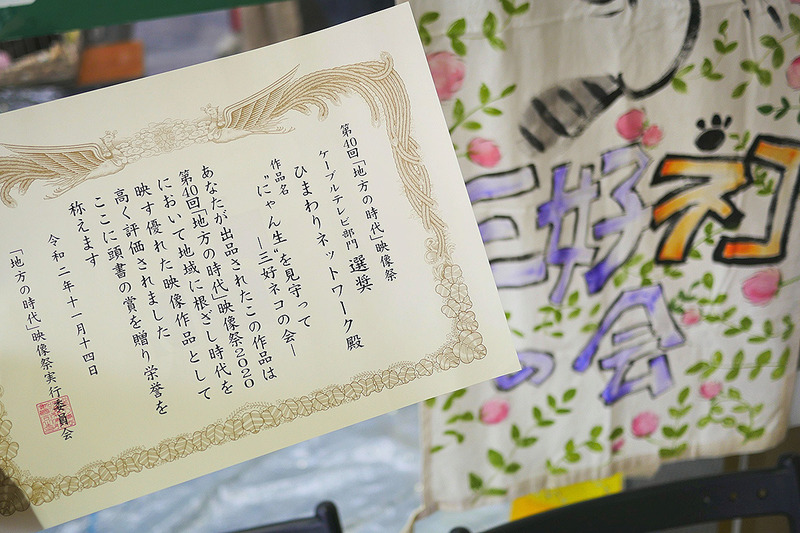 第40回「地方の時代」映像祭
ケーブルテレビ部門 選奨
ひまわりネットワーク殿
作品名
“にゃん生”を見守って
―三好ネコの会―
あなたが出品されたこの作品は
第40回「地方の時代」映像祭2020
において地域に根ざし時代を
映す優れた映像作品として
高く評価されました
ここに頭書の賞を贈り栄誉を
称えます
令和二年十一月十四日
「地方の時代」映像祭実行委員会
三好ネコ
の会